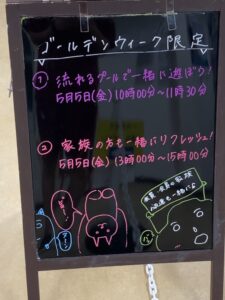 ゴールデンウィーク限定
① 流れるプールで一緒に遊ぼう!
5月5日(金)10時00分~11時30分
② 家族の方も一緒にリフレッシュ!
5月5日(金)13時00分~15時00分